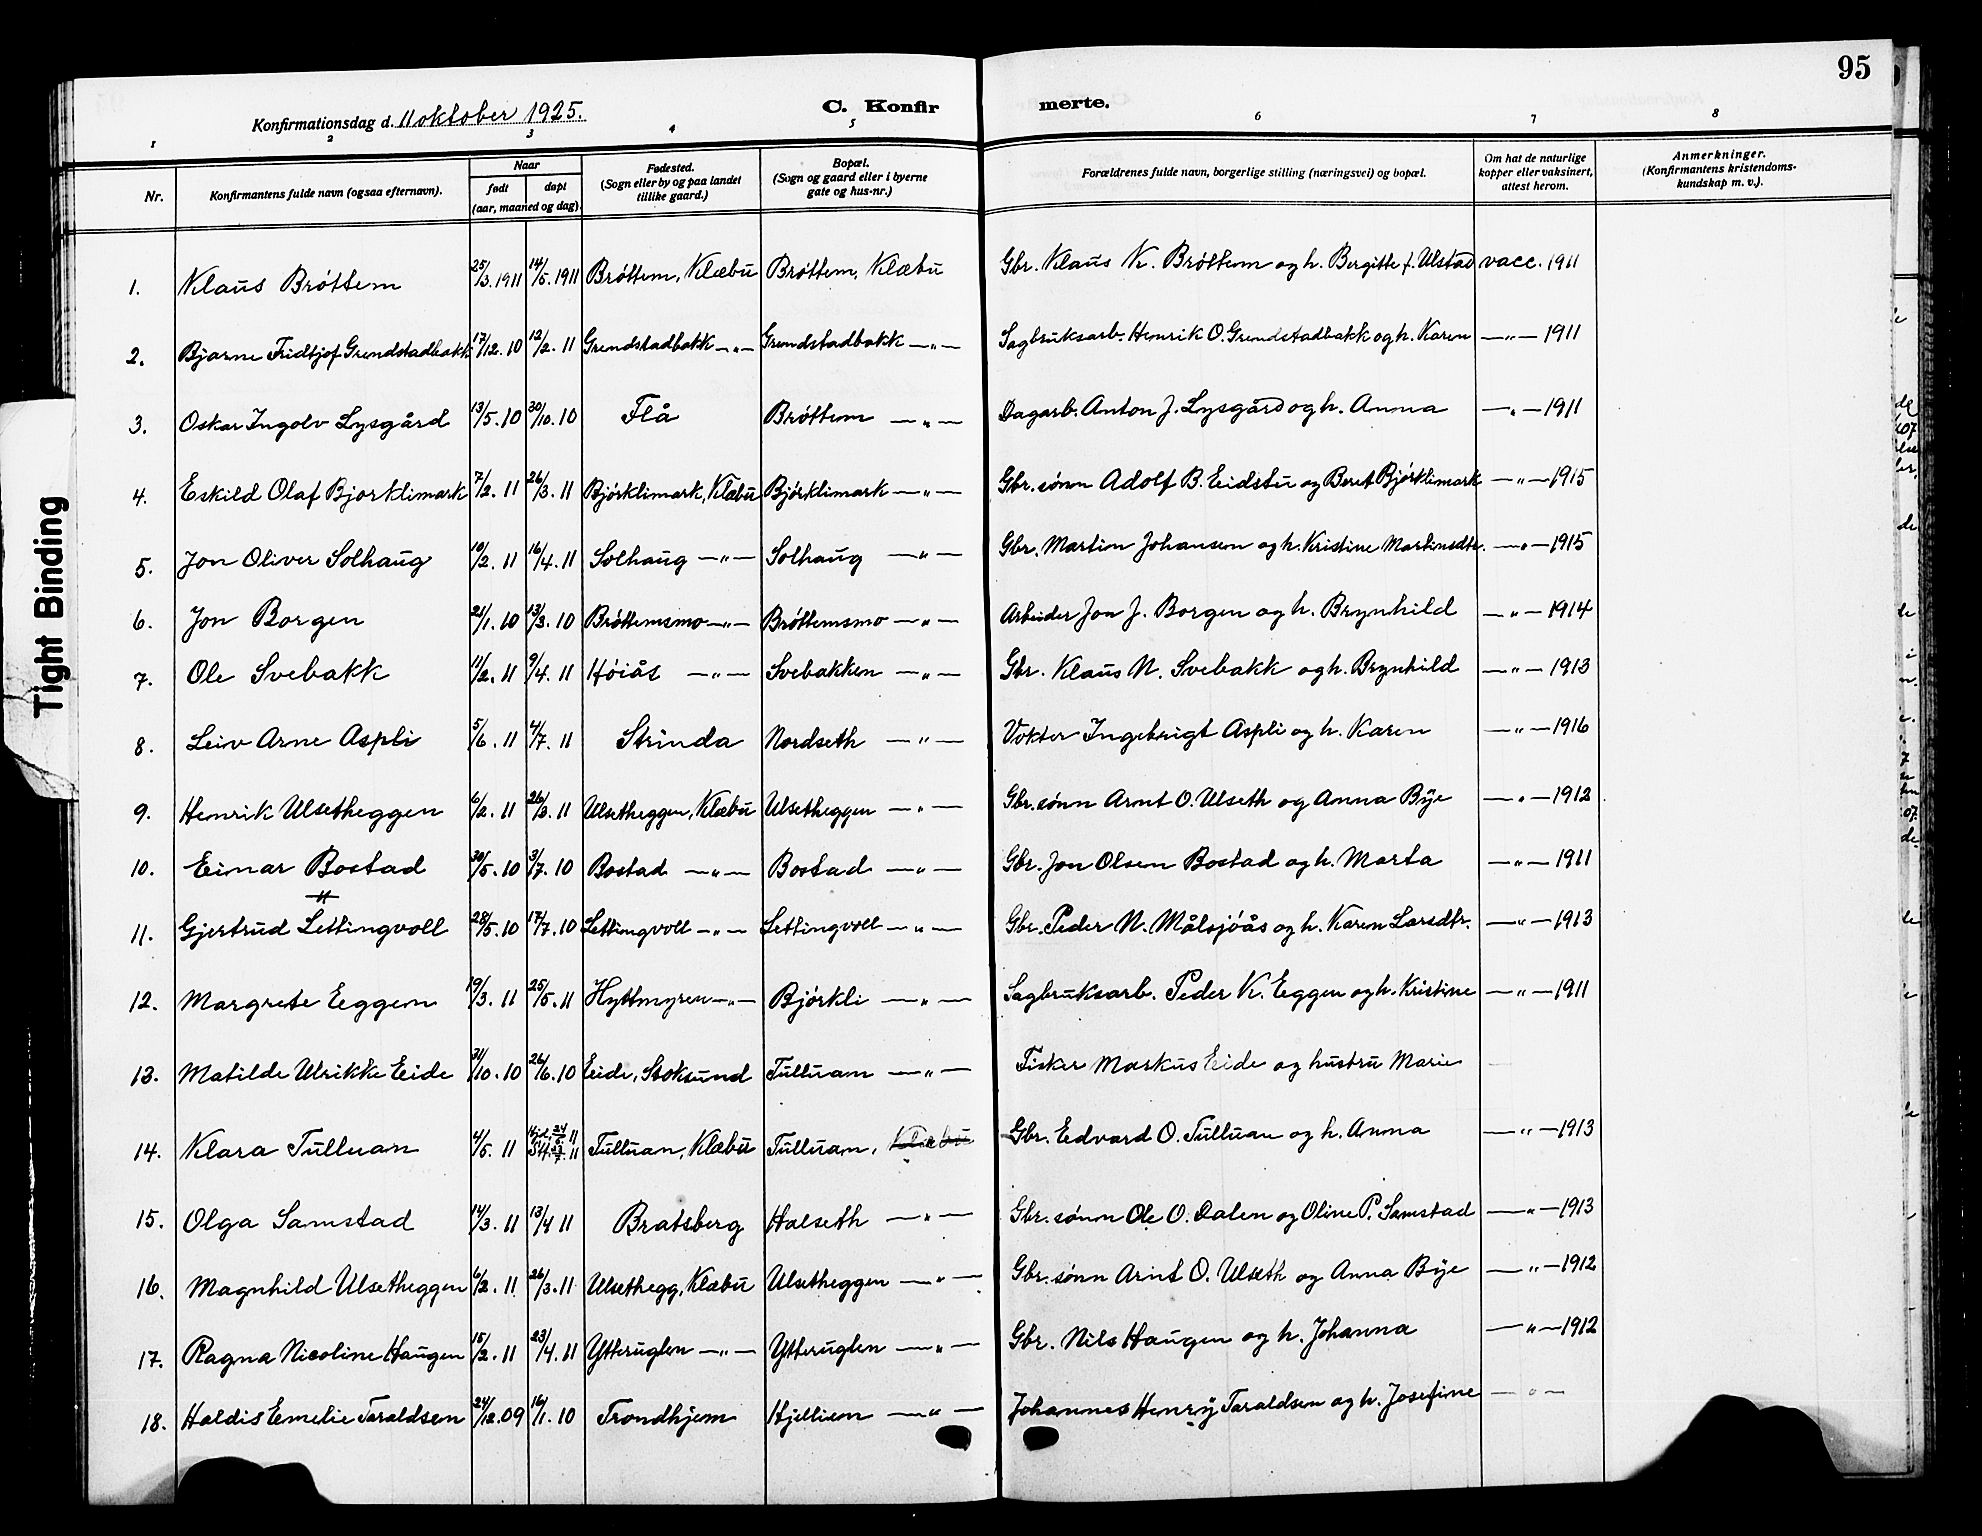 95
Konfirmationsdag d. 11 oktober 1925. C. Konfirmerte.
1 2 3 4 5 6 7 8
Nr. Konfirmantens fulde navn (ogsaa efternavn). Naar født døpt (aar, maaned og dag). Fødested. (Sogn eller by og paa landet tillike gaard.) Bopæl. (Sogn og gaard eller i byerne gate og hus-nr.) Forældrenes fulde navn, borgerlige stilling (næringsvei) og bopæl. Om hat de naturlige kopper eller vaksinert, attest herom. Anmerkninger. (Konfirmantens kristendoms-kundskap m. v.).
1. Klaus Brøttem 25/3.1911 14/5.1911 Brøttem, Klæbu Brøttem, Klæbu Gbr. Klaus K. Brøttem og h. Bergitte f. Ulstad vacc. 1911
2. Bjarne Fridtjof Grendstadbakk 17/12.10 12/2.11 Grendstadbakk —"— Grendstadbakk —"— Sagbruksarb. Henrik O. Grendstadbakk og h. Karen —"— 1911
3. Oskar Ingolv Lysgård 13/5.10 30/10.10 Flå Brøttem —"— Dagarb. Anton J. Lysgård og h. Anna —"— 1911
4. Eskild Olaf Bjorklimark 7/2.11 26/3.11 Bjørklimark, Klæbu Bjørklimark —"— Gbr.sønn Adolf B. Eidstu og Beret Bjørklimark —"— 1915
5. Jon Oliver Solhaug 10/2.11 16/4.11 Solhaug —"— Solhaug —"— Gbr. Martin Johansen og h. Kristine Martinsdtr. —"— 1915
6. Jon Borgen 21/1.10 13/3.10 Brøttemsmo —"— Brøttemsmo —"— Arbeider Jon J. Borgen og h. Brynhild —"— 1914
7. Ole Svebakk 11/2.11 9/4.11 Høiås —"— Svebakken —"— Gbr. Klaus N. Svebakk og h. Brynhild —"— 1913
8. Leiv Arne Aspli 5/6.11 4/7.11 Strinda Nordseth —"— Vokter Ingebrigt Aspli og h. Karen —"— 1916
9. Henrik Ulsetheggen 6/2.11 26/3.11 Ulsetheggen, Klæbu Ulsetheggen —"— Gbr.sønn Arnt O. Ulseth og Anna Bye —"— 1912
10. Einar Bostad 30/5.10 3/7.10 Bostad —"— Bostad —"— Gbr. Jon Olsen Bostad og h. Marta —"— 1911
11. Gjertrud Lettingvoll 28/5.10 17/7.10 Lettingvoll —"— Lettingvoll —"— Gbr. Peder N. Målsjøås og h. Karen Larsdtr. —"— 1913
12. Margrete Eggen 19/3.11 25/5.11 Hyttmyren —"— Bjørkli —"— Sagbruksarb. Peder K. Eggen og h. Kristine —"— 1911
13. Matilde Ulrikke Eide 31/10.10 26/6.10 Eide, Stoksund Tulluan —"— Fisker Markus Eide og hustru Marie
14. Klara Tulluan 4/5.11 Tulluan, Klæbu Tulluan, Klæbu Gbr. Edvard O. Tulluan og h. Anna —"— 1913
15. Olga Samstad 14/3.11 13/4 11 Bratsberg Halseth —"— Gbr.sønn Ole O. Dalen og Oline P. Samstad —"— 1913
16. Magnhild Ulsetheggen 6/2.11 26/3.11 Ulsethegg, Klæbu Ulsetheggen —"— Gbr.sønn Arnt O. Ulseth og Anna Bye —"— 1912
17. Ragna Nicoline Haugen 15/2.11 23/4.11 Ytteruglen —"— Ytteruglen —"— Gbr. Nils Haugen og h. Johanna —"— 1912
18. Haldis Emelie Taraldsen 24/12.09 16/1.10 Trondhjem Hjellien —"— Johannes Henry Taraldsen og h. Josefine —"—
Tight Binding